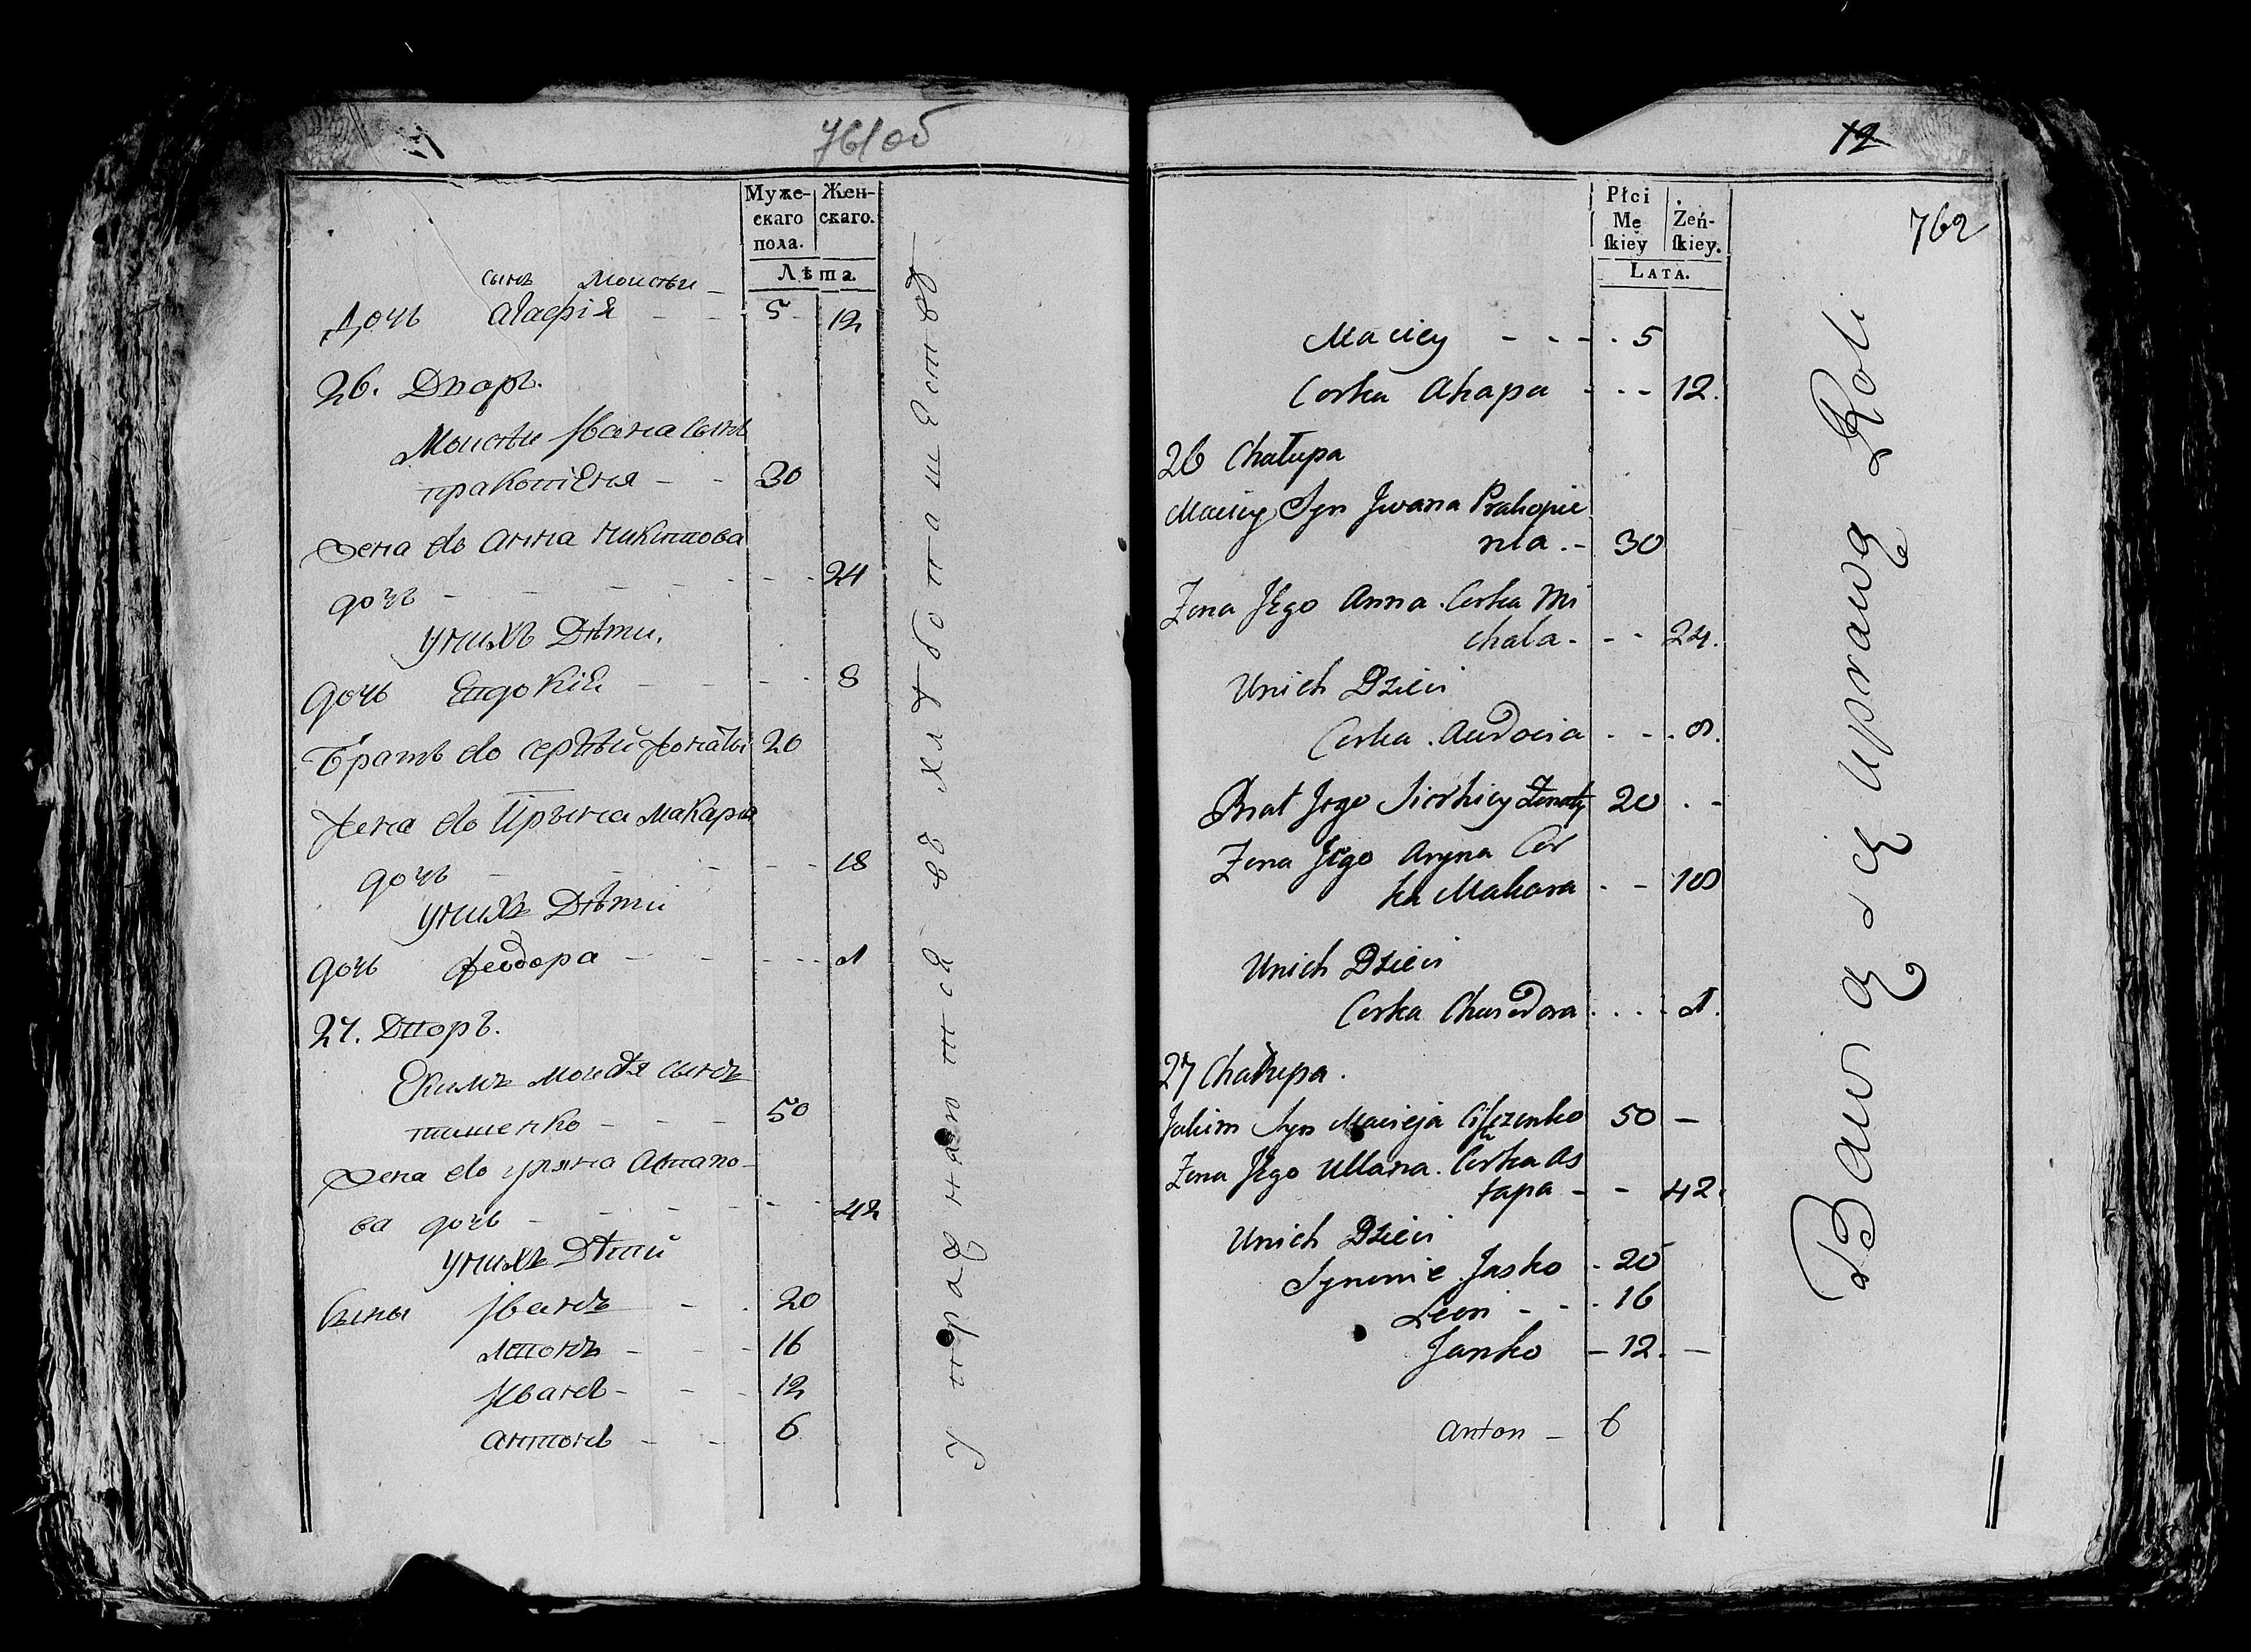 761об
Муже-
скаго
пола.
Жен-
скаго.
Лѣта.
сынъ Моисѣи
дочь агафія 5 12
26. Дворъ.
Моисѣи Ивана сынъ
пракопіеня - - 30
Жена его анна никитова
дочь - - - 24
у нихъ Дѣти.
дочь Евдокіе - - 8
братъ его сергѣй женатый 20
жена его Ирына макара
дочь - - - 18
у нихъ Дѣти
дочь феодора - - 1
27. Дворъ.
Екимъ моисѣя сынъ
- - 50
Жена его уляна Астапо-
ва дочь - - - 42
у нихъ Дѣти
сыны Иванъ - 20
левонъ - - 16
Иванъ - - 12
антонъ - - 6
Упражнаются въ хлѣбопашествѣ
12
762
Płci
Mę
skiey
Żeń-
skiey.
LATA.
Maciey - - - 5
Corka Ahapa - - - 12.
26 Chałupa
Maciey Syn Jwana Prakopie
nia. - 30
Zona Jego Anna. Corka Mi
chala - - - 24.
Unich Dzieci
Corka. Audocia - - - 8.
Brat Jego Sierhiey Zonaty 20 . -
Zona Jego Aryna Cor
ka Makara - - 18
Unich Dzieci
Corka Chwiedora . . . . 1.
27 Chałupa.
Jakim Syn Macieja 50 -
Zona Jego Ullana. Corka As
tapa - - 42.
Unich Dzieci
Synowie Jasko - 20
Leon - - - 16
Janko - 12. -
Anton - 6
Bawią się uprawą Roli